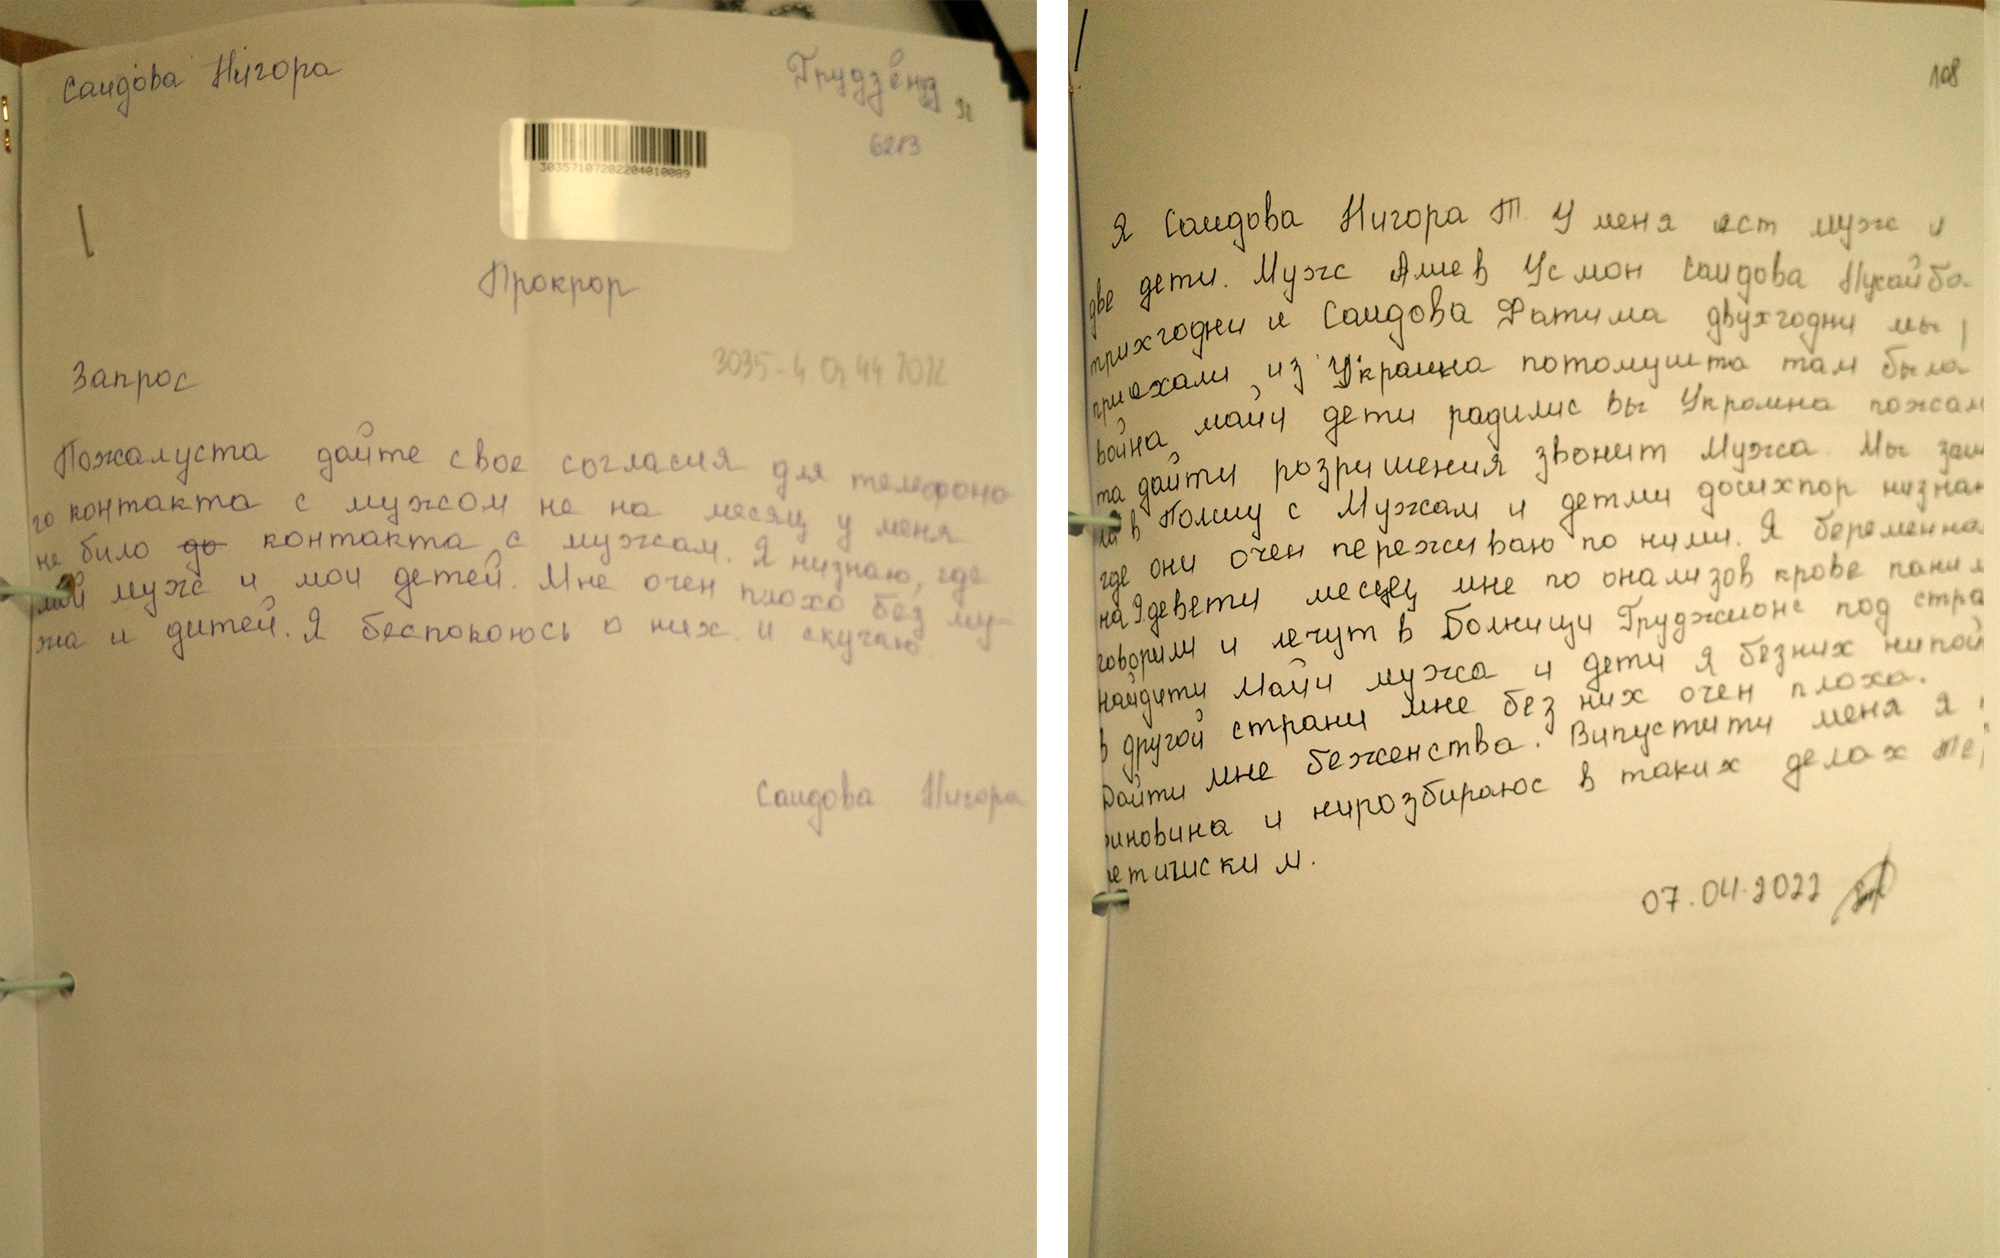 Саидова Нигора
Грудзёндз
6213
30357107202204010089
Прокрор
3035-4 Oz 44 2022
Запрос
Пожалуста дайте свое согласия для телефоно
го контакта с мужом не на месяц у меня
не било контакта с мужам. Я низнаю, где
мой мужс и мои детей. Мне очен плохо без му-
жа и дитей. Я беспокоюсь о них и скучаю
Саидова Нигора
108
Я Саидова Нигора Т У меня ест мужс и
две дети. Мужс Алиев Усмон Саидова Мухайбо
трихгодни и Саидова Фатима двухгодни мы
приехали из Украина потомушта там была
война майи дети радилис вы Украина пожал
та дайти розришения звонит Мужа. Мы заш
ли в Полшу с Мужам и детми досихпор низна
где они очен переживаю по ними. Я беременна
на 9девети месец мне по онализов крове пани
говорили и лечут в Болници Груджионс под стра
найдити Майи мужа и дети я безних нипой
в другой страни мне без них очен плоха.
Дайти мне беженства. Випустити меня я
виновина и нирозбираюс в таких делах те
етически м.
07.04.2022